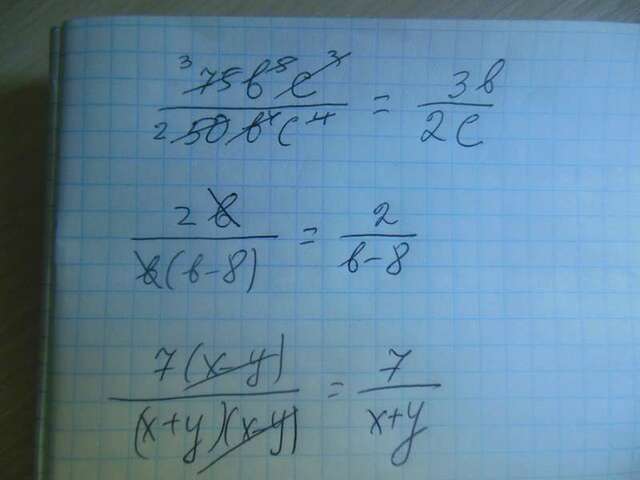 ³75b⁸c³ / ²50b⁷c⁴ = 3b / 2c
2b / b(b-8) = 2 / b-8
7(x-y) / (x+y)(x-y) = 7 / x+y